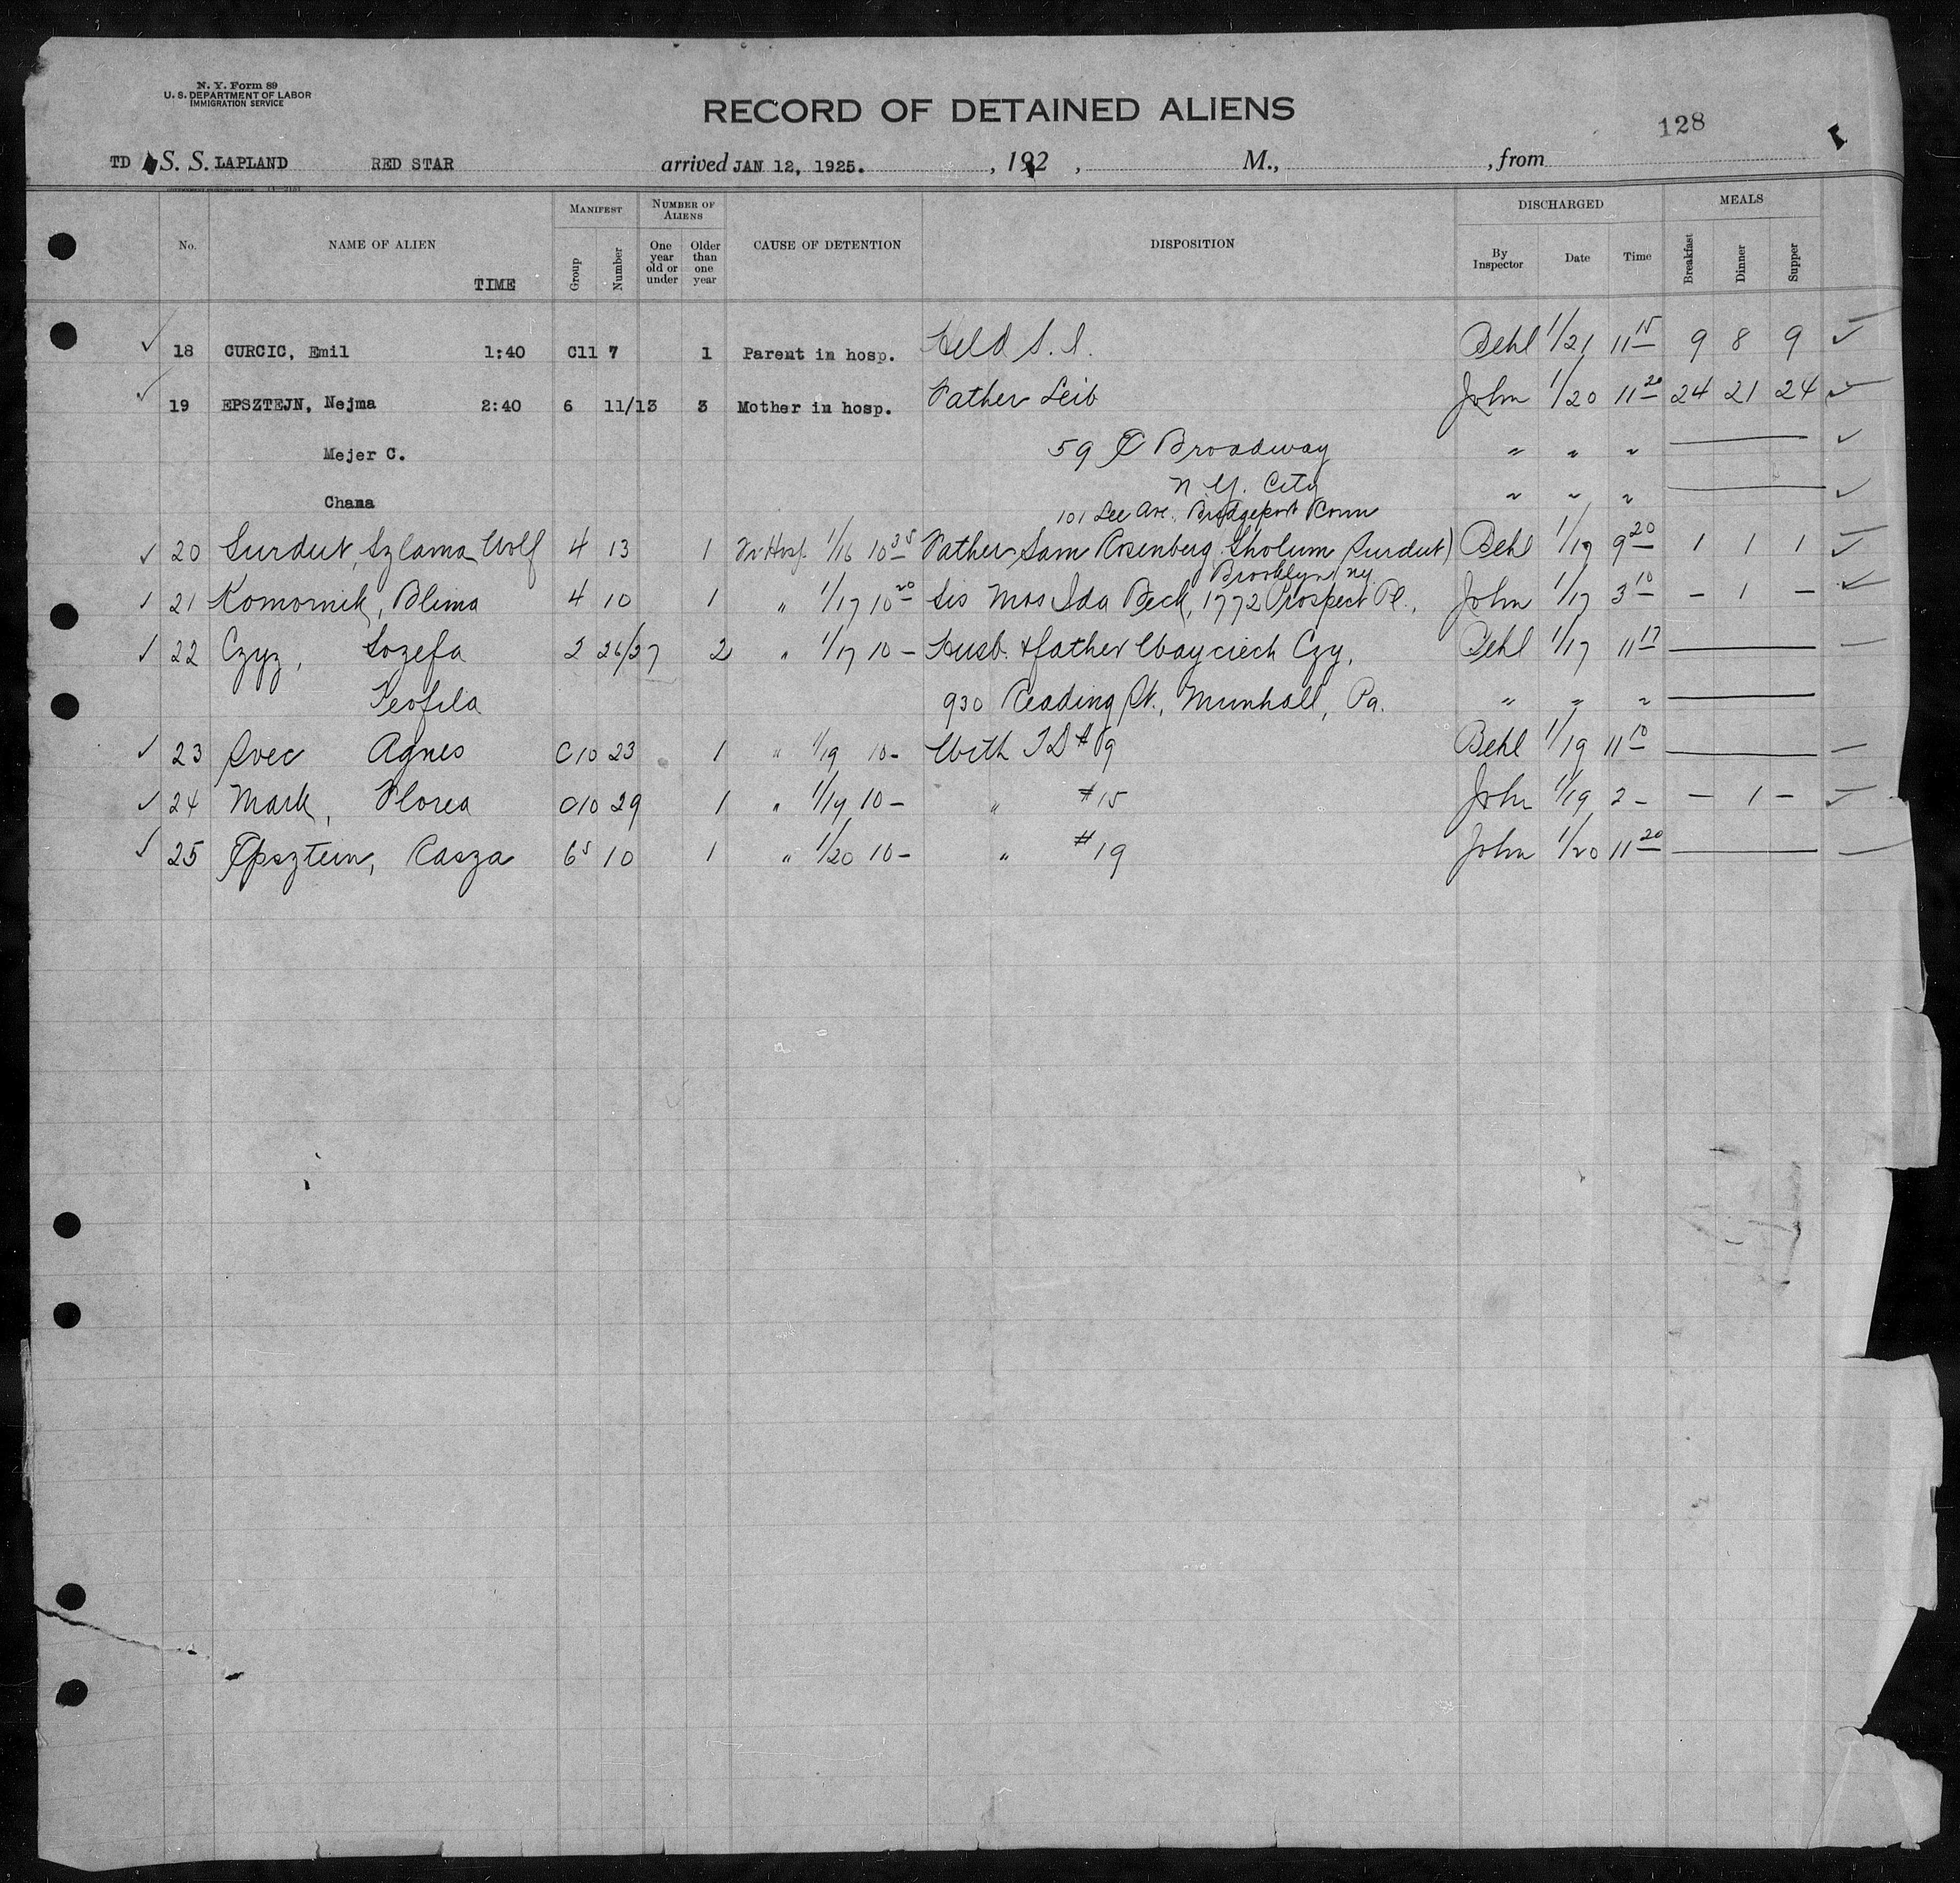 N. Y. Form 89
U. S. DEPARTMENT OF LABOR
IMMIGRATION SERVICE
RECORD OF DETAINED ALIENS
128
TD S. S. LAPLAND RED STAR arrived JAN 12, 1925. , 192 , M., , from
MANIFEST NUMBER OF ALIENS DISCHARGED MEALS
No. NAME OF ALIEN TIME Group Number One year old or under Older than one year CAUSE OF DETENTION DISPOSITION By Inspector Date Time Breakfast Dinner Supper
✓ 18 CURCIC, Emil 1:40 C11 7 1 Parent in hosp. Held S. I. Behl 1/21 11 15 9 8 9 ✓
✓ 19 EPSZTEJN, Nejma 2:40 6 11/13 3 Mother in hosp. Father Leib John 1/20 11 20 24 21 24 ✓
Mejer C. 59 E Broadway " " " — ✓
Chana N. Y. City " " " — ✓
101 Lee Ave., Bridgeport Conn
✓ 20 Surdut, Szlama Wolf 4 13 1 In Hosp. 1/16 10 25 Father Sam Rosenberg (Sholum Surdut) Behl 1/17 9 20 1 1 1 ✓
Brooklyn NY.
✓ 21 Komornik, Blima 4 10 1 " 1/17 10 20 Sis Mrs Ida Beck, 1772 Prospect Pl., John 1/17 3 10 – 1 – ✓
✓ 22 Czyz, Jozefa 2 26/27 2 " 1/17 10 – Husb. & father Wayciech Czy, Behl 1/17 11 17 — –
Teofila 930 Reading St., Munhall, Pa. " " " —
✓ 23 Svec Agnes C10 23 1 " 1/19 10 – With TD #9 Behl 1/19 11 10 — –
✓ 24 Mark, Florea C10 29 1 " 1/19 10 – " #15 John 1/19 2 – – 1 – ✓
✓ 25 Epsztein, Rasza 6 5 10 1 " 1/20 10 – " #19 John 1/20 11 20 — –